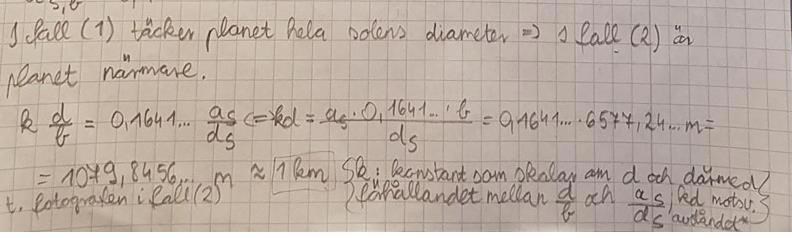 I fall (1) täcker planet hela solens diameter => i fall (2) är
planet närmare.
k d/b = 0,1641... as/ds <=> kd = as · 0,1641... · b / ds = 0,1641... · 6577,24... m =
= 1079,8456... m ≈ 1 km {k: konstant som skalar om d och därmed}
t. fotografen i fall (2) {förhållandet mellan d/b och as/ds, led motsv. avståndet*}